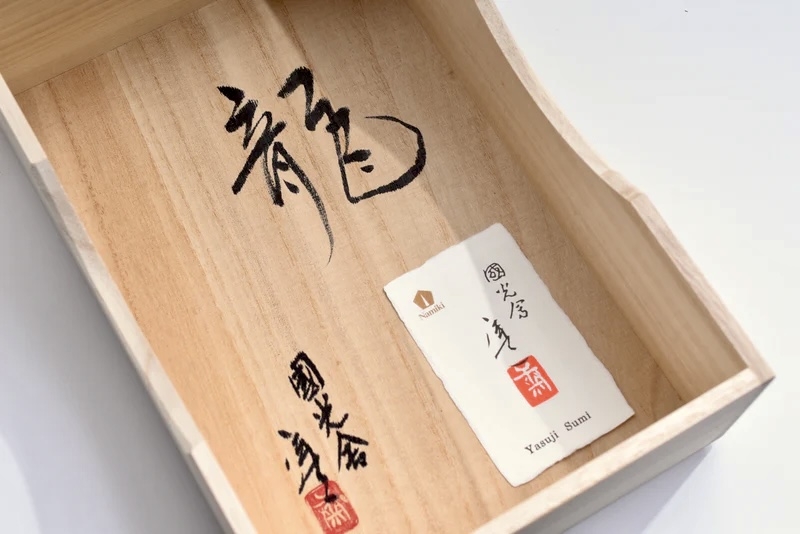 龍
國光會
Namiki
國光會
Yasuji Sumi